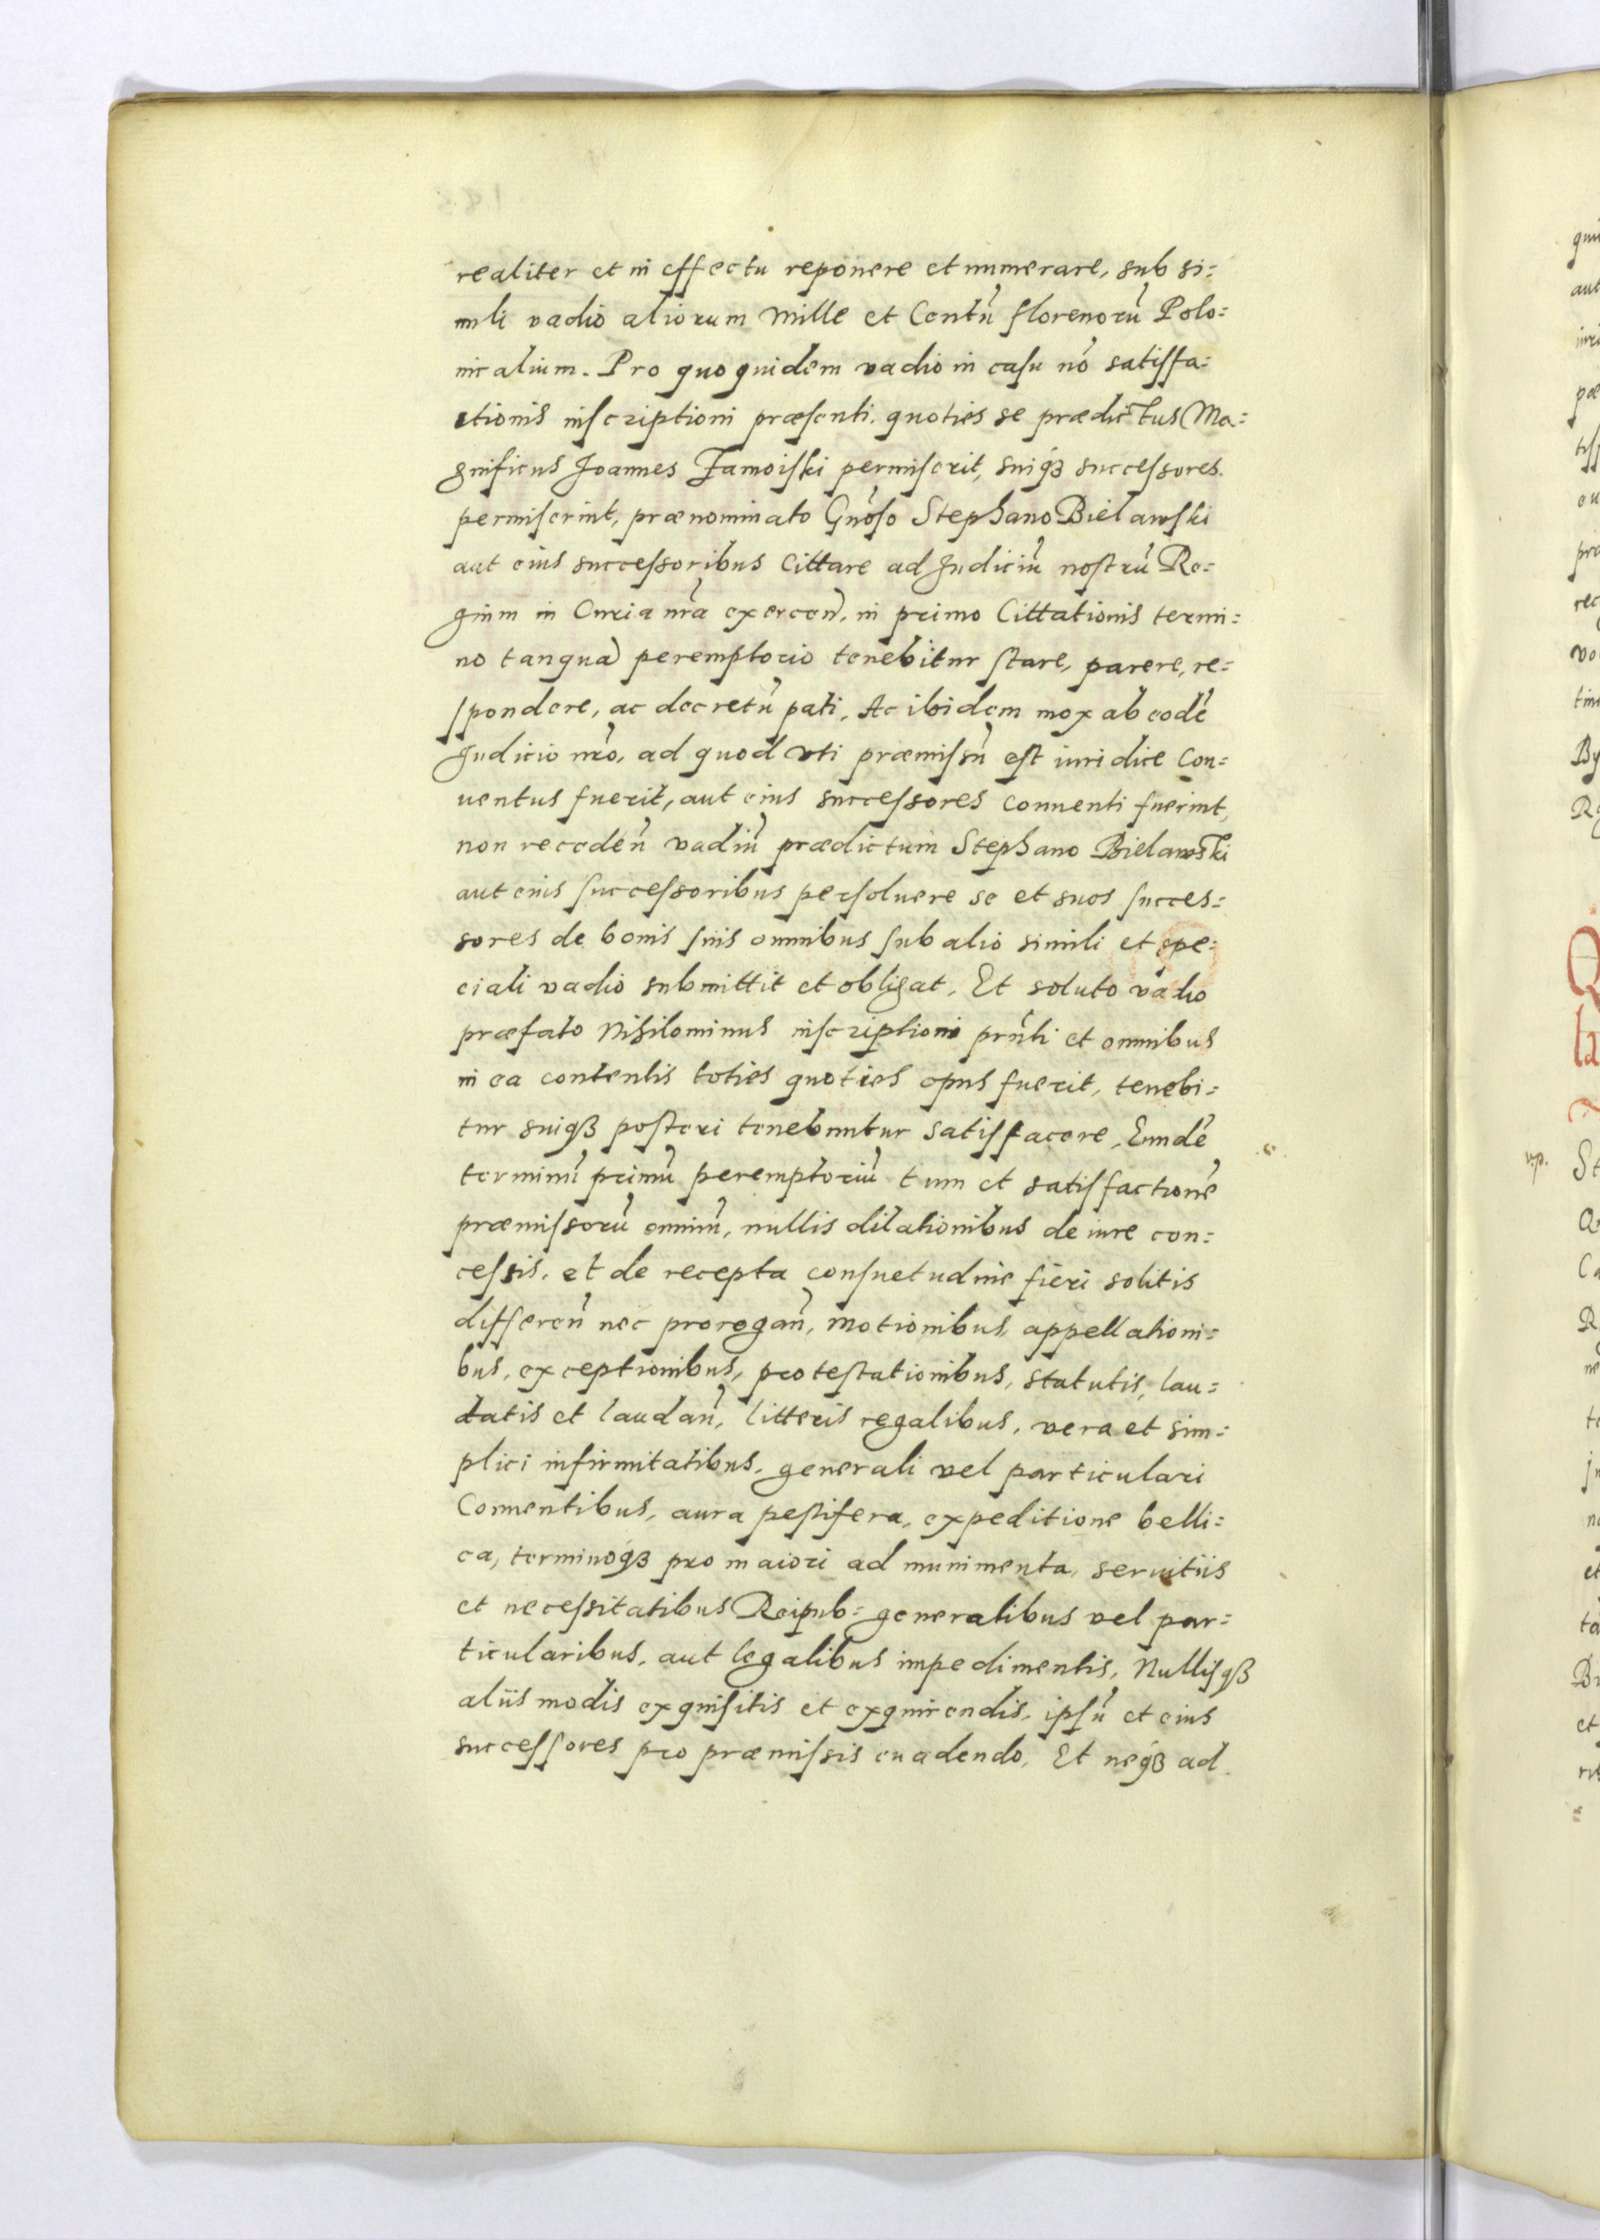 realiter et in effectu reponere et numerare, sub si=
mili vadio aliorum Mille et Centũ florenorũ Polo=
nicalium. Pro quo quidem vadio in casu nõ satisfa=
ctionis inscriptioni præsenti, quoties se prædictus Ma=
gnificus Joannes Zamoiski permiserit, suiqꝫ successores
permiserint, prænominato Gnõso Stephano Bielawski
aut eius successoribus Cittare ad Judiciũ nostrũ Re=
gium in Curia nrã exercen̄, in primo Cittationis termi=
no tanquã peremptorio tenebitur stare, parere, re=
spondere, ac decretũ pati, Ac ibidem mox ab eodẽ
Judicio nrõ, ad quod vti præmissũ est iuridice Con=
uentus fuerit, aut eius successores conuenti fuerint,
non receden̄ vadiũ prædictum Stephano Bielawski
aut eius successoribus persoluere se et suos succes=
sores de bonis suis omnibus sub alio simili et spe=
ciali vadio submittit et obligat, Et soluto vadio
præfato Nihilominus inscriptioni prñti et omnibus
in ea contentis toties quoties opus fuerit, tenebi=
tur suiqꝫ posteri tenebuntur satisfacere, Eundẽ
terminũ primũ peremptoriũ tum et satisfactionẽ
præmissorũ omniũ, nullis dilationibus de iure con=
cessis, et de recepta consuetudine fieri solitis
differen̄ nec prorogan̄, motionibus, appellationi=
bus, exceptionibus, protestationibus, statutis, lau=
datis et laudan̄, litteris regalibus, vera et sim=
plici infirmitatibus, generali vel particulari
Conuentibus, aura pestifera, expeditione belli=
ca, terminoqꝫ pro maiori ad munimenta, seruitiis
et necessitatibus Reipub= generalibus vel par=
ticularibus, aut legalibus impedimentis, Nullisqꝫ
aliis modis exquisitis et exquirendis, ipsũ et eius
successores pro præmissis euadendo, Et neqꝫ ad